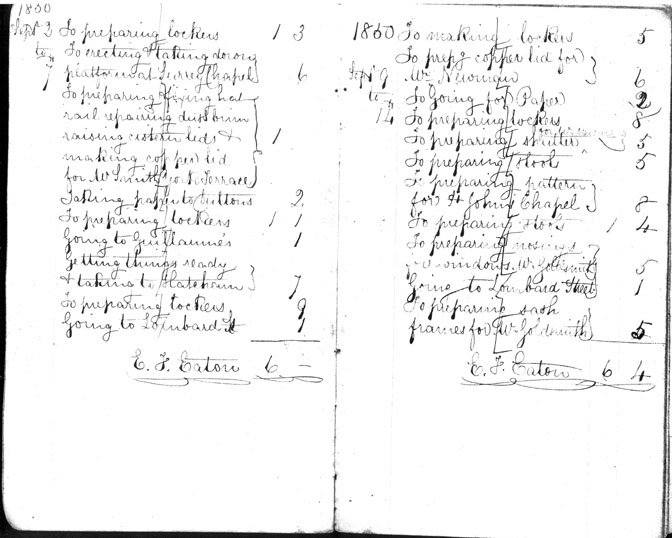 1850
Sept 2 To preparing lockers 1 3
to To erecting & taking down
7 platform at Surrey Chapel 6
To preparing & fixing hat
rail repairing dust bin
raising cistern lids & 1
making copper lid
for Mr Smith York Terrace
Taking paper to Suttons 2
To preparing lockers 1 1
Going to Guillaume's 1
Getting things ready
& taking to 7
To preparing lockers 9
Going to Lombard St 1
E. F. Eaton 6 –
1850 To making lockers 5
To prepg copper lid for
Sept 9 Mr Newman 6
to To Going for Paper 2
14 To preparing lockers 8
To preparing shutter
To preparing stools 5
To preparing pattern
for St Johns Chapel 8
To preparing 1 4
To preparing nosings
windows Mr Goldsmith 5
Going to Lombard Street 1
To preparing sash
frames for Mr Goldsmith 5
E. F. Eaton 6 4